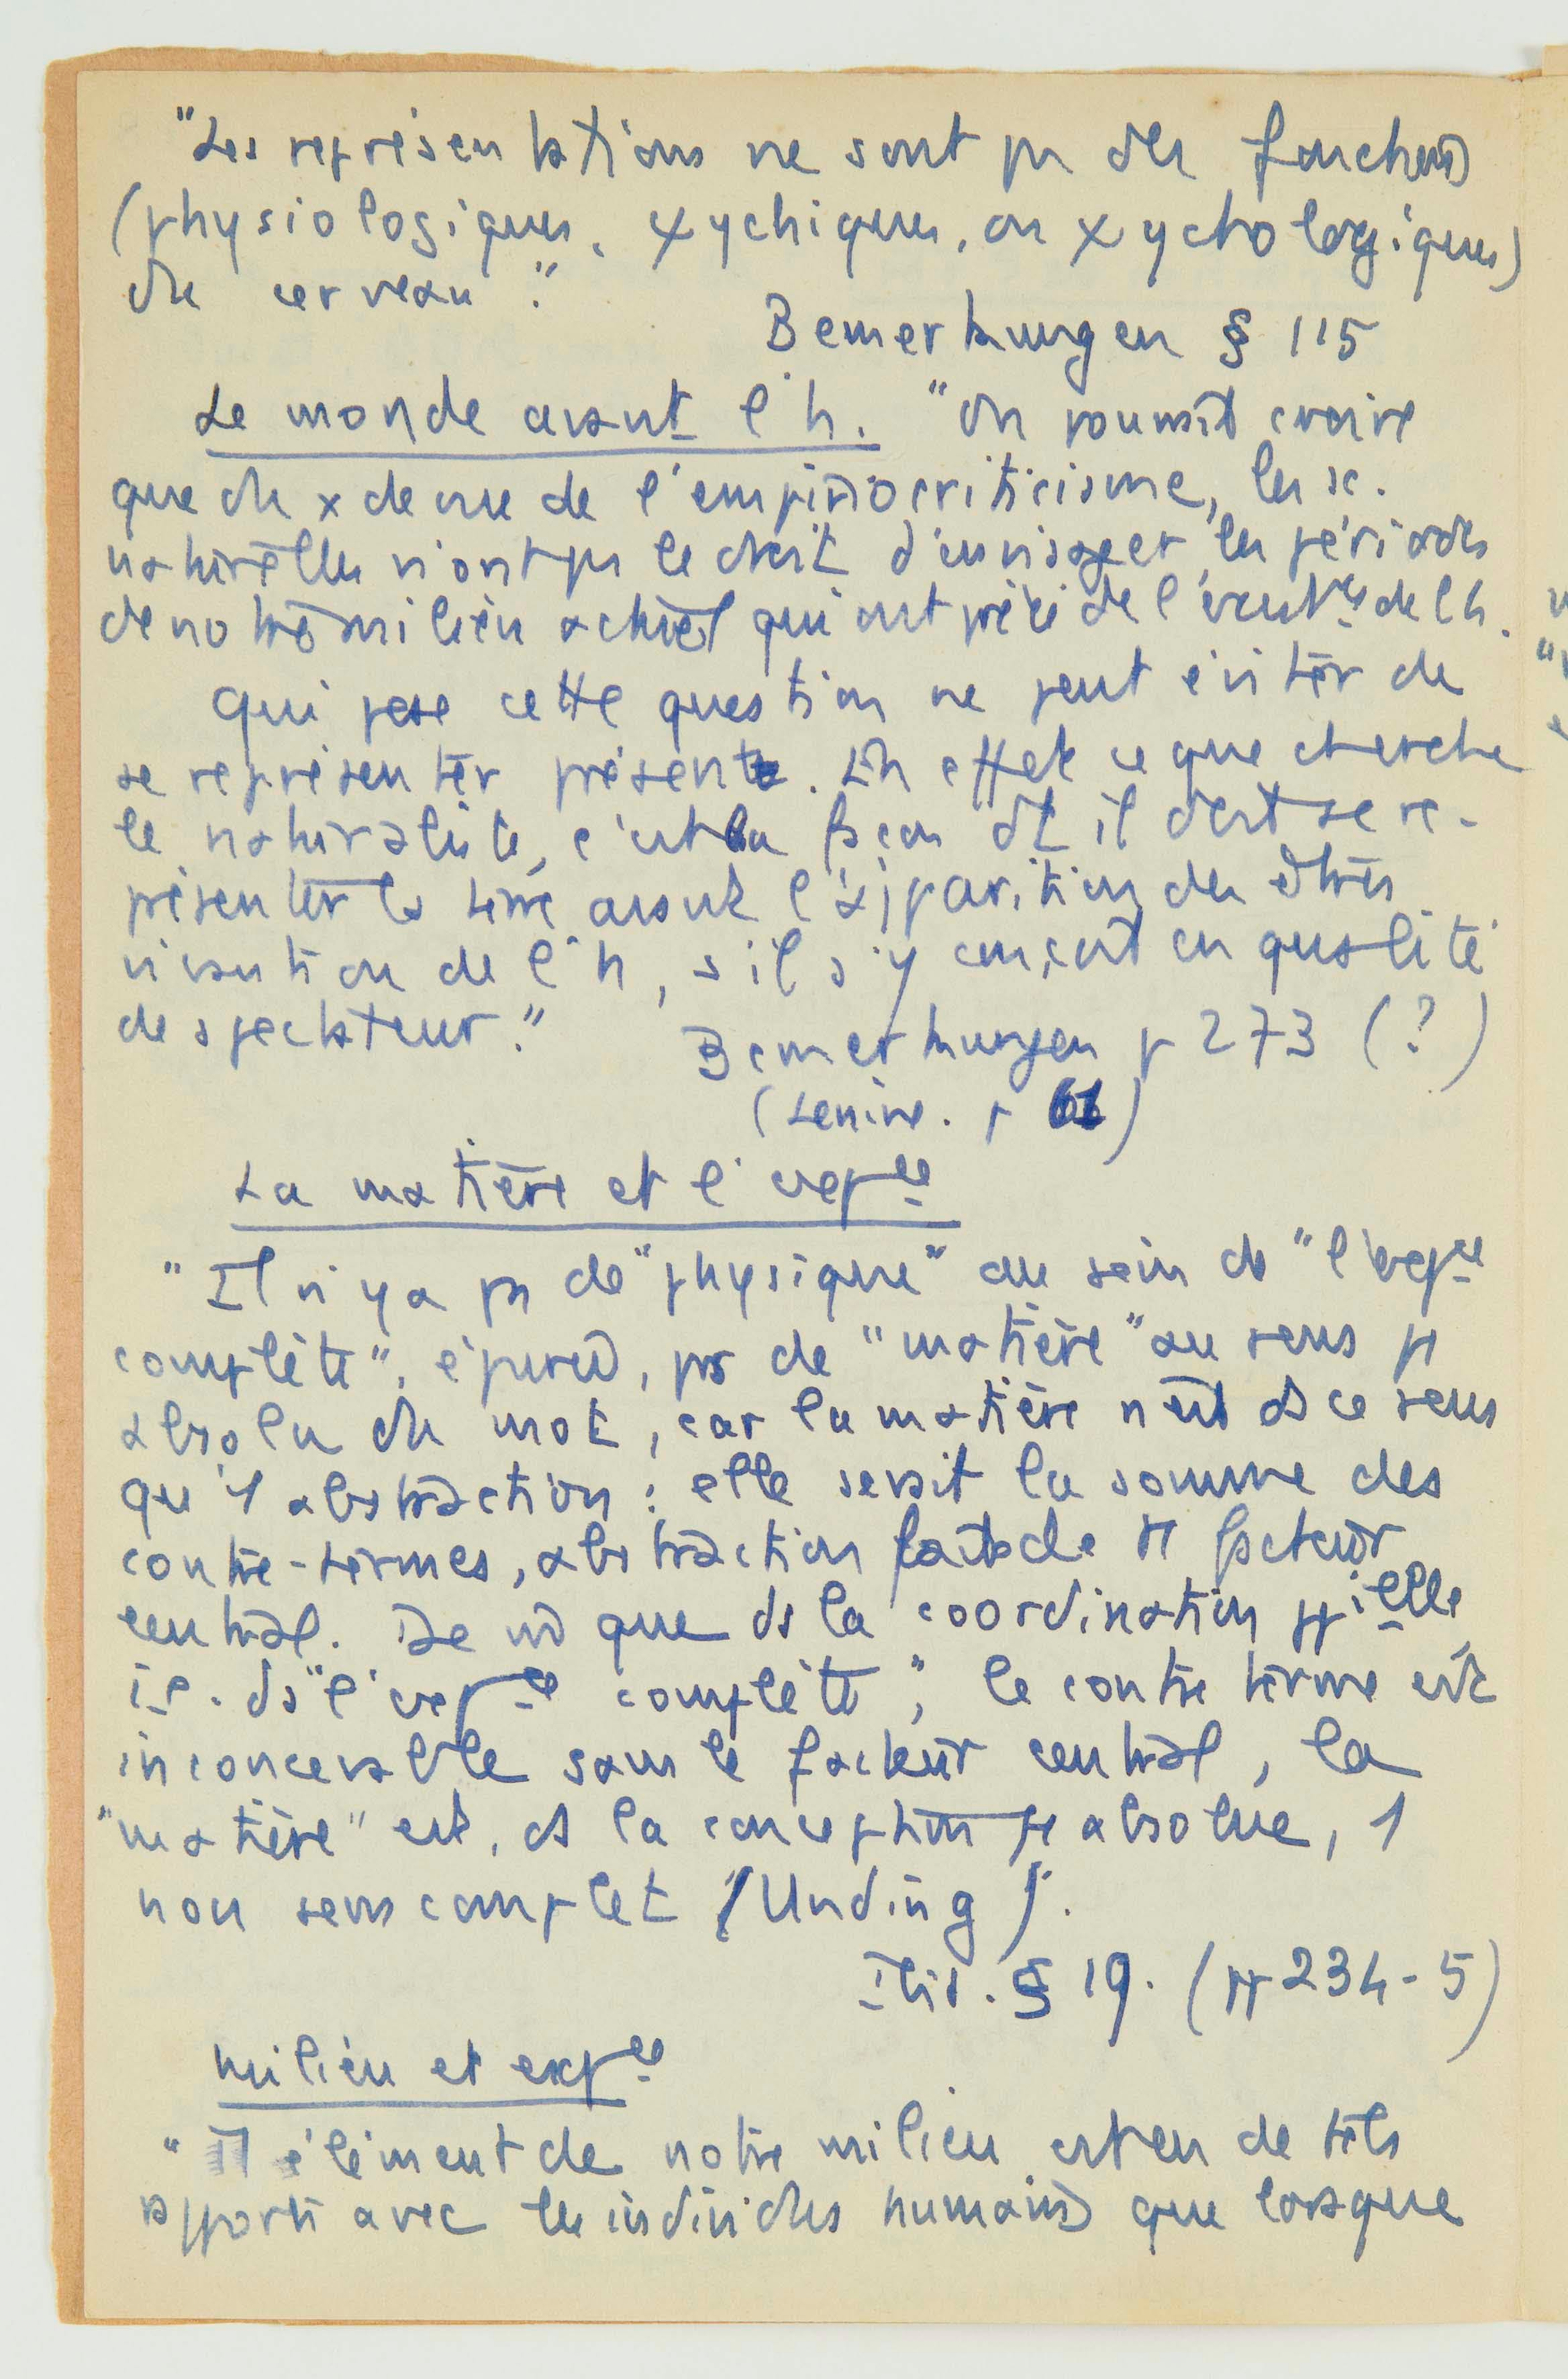 "Les représentations ne sont pas des fonctions
(physiologiques, ψychiques, ou ψychologiques)
du cerveau".
Bemerkungen § 115
Le monde avant l'h. "On pourrait croire
que du x de vue de l'empiriocriticisme, les sc.
naturelles n'ont pas le droit d'envisager les périodes
de notre milieu actuel qui ont précédé l'exist^ce de l'h.
Qui pose cette question ne peut éviter de
se représenter présent. En effet ce que cherche
le naturaliste, c'est la façon dt il doit se re-
présenter la terre avant l'apparition des êtres
vivants ou de l'h, s'il s'y conçoit en qualité
de spectateur."
Bemerkungen p 273 (?)
(Lenine. p)
La matière et l'exp^ce
"Il n'y a pas de "physique" au sein de "l'exp^ce
complète", épurée, pas de "matière" au sens φ
absolu du mot, car la matière n'est ds ce sens
qu'1 abstraction : elle serait la somme des
contre-termes, abstraction faite de tt facteur
central. De m̂ que ds la coordination pp^ielle,
i.e. ds "l'exp^ce complète", le contre terme est
inconcevable sans le facteur central, la
"matière" est, ds la conception φ absolue, 1
non sens complet (Unding)".
Ibid. § 19. (pp 234-5)
Milieu et exp^ce
" Tt élément de notre milieu est en de tels
rapports avec les individus humains que lorsque